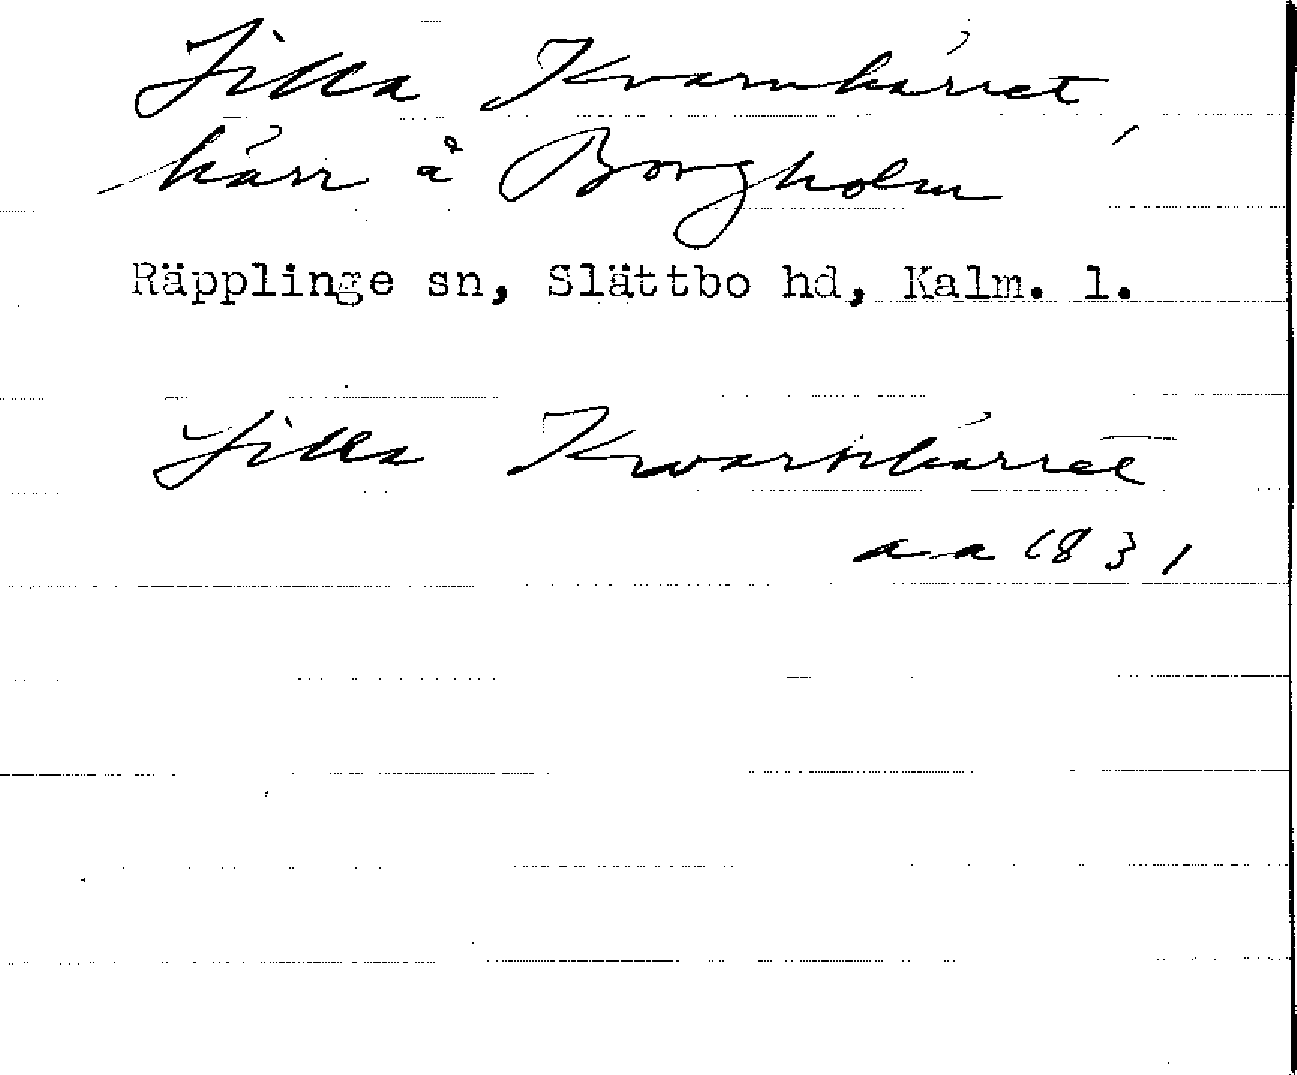 Lilla Kvarnkärret,
kärr å Borgholm
Räpplinge sn, Slättbo hd, Kalm. l.
Lilla Kwarnkärret
aa 1831